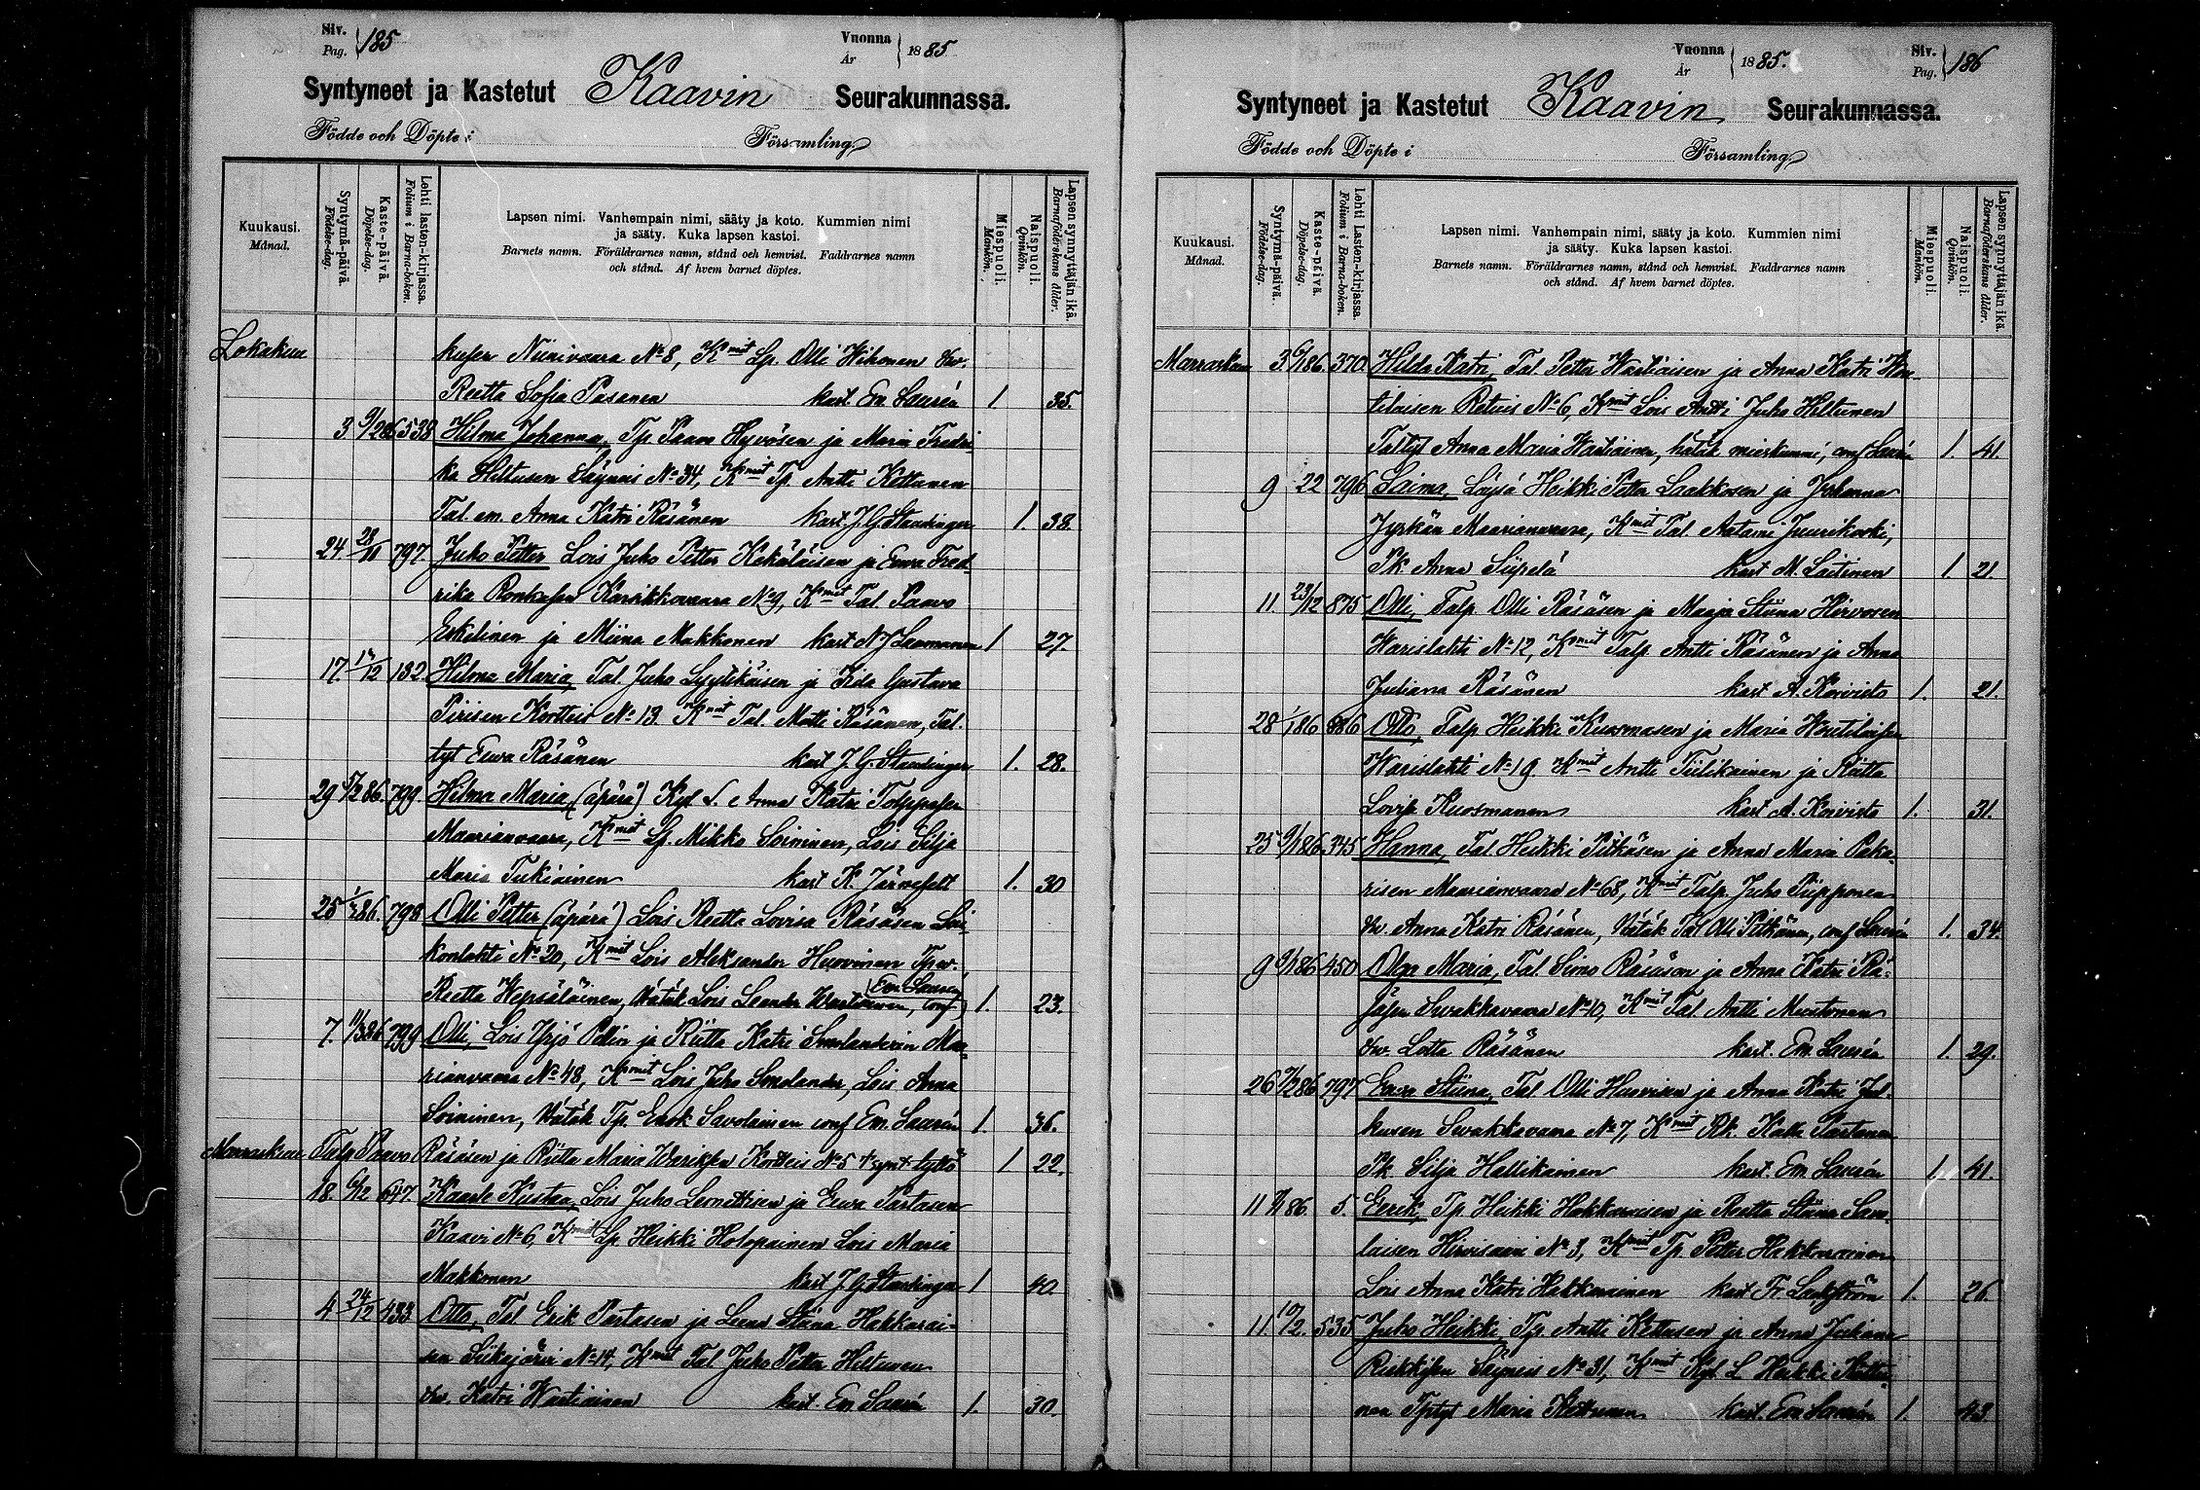 Siv. Pag. 185
Vuonna År 1885
Syntyneet ja Kastetut Kaavin Seurakunnassa.
Födde och Döpte i Församling
Kuukausi. Månad.
Syntymä-päivä. Födelse-dag.
Kaste-päivä. Döpelse-dag.
Lehti lasten-kirjassa. Folium i Barna-boken.
Lapsen nimi. Vanhempain nimi, sääty ja koto. Kummien nimi
ja sääty. Kuka lapsen kastoi.
Barnets namn. Föräldrarnes namn, stånd och hemvist. Faddrarnes namn
och stånd. Af hvem barnet döptes.
Miespuoli. Mankön.
Naispuoli. Qvinkön.
Lapsen synnyttäjän ikä. Barnaföderskans ålder.
Lokakuu Niinivaara No 8, Kmit Lp. Olli Wihonen vv.
Reetta Sofia Pasanen kast. Em Laurén 1. 35.
3 538 Hilma Johanna, Tp Paavo Hyvösen ja Maria Fredri-
ka Hiltusen Säyneis No 34, Kmit Tp. Antti Kettunen
Tal. em. Anna Katri Räsänen kast. J. G. Standinger 1. 38.
24 28/11 797. Juho Petter Lois Juho Petter Kekäläisen ja Eewa Fred-
rika Ronkasen Karsikkovaara No 9, Kmit Tal. Paavo
Eskelinen ja Miina Makkonen kast N J Laamanen 1 27.
17. 132 Hilma Maria, Tal. Juho Lyytikäisen ja Iida Gustava
Piirisen Kortteis No 13 Kmit Tal. Matti Räsänen, Tal.
tyt Eewa Räsänen kast J. G. Standinger 1. 28.
29 86. 799. Hilma Maria (äpärä) Kyl L. Anna Katri
Maarianvaara, Kmit Lp. Mikko Soininen, Lois Silja
Maria Tukiainen kast K. Järnefelt 1. 30
25 86. 798 Olli Petter (äpärä) Lois Reetta Lovisa Räsäsen
konlahti No 20, Kmit Lois Aleksander Huovinen
Reetta Hepsäläinen, Hätäk Lois Leander Wartiainen, conf Em. Laurén 1. 23.
7. 86 799 Olli, Lois Yrjö Pellin ja Riitta Katri Smolanderin Maa-
rianvaara No 48, Kmit Lois Juho Smolander, Lois Anna
Soininen, Hätäk Tp. Eerik Savolainen conf Em. Laurén 1. 36.
Marraskuu Talp Paavo Räsäsen ja Riitta Maria Kortteis No 5 synt. tyttö 1 22.
18 6/12 647. Kaarle Kustaa, Lois Juho Leonettisen ja Eewa Partasen
Kaavi No 6, Kmit Lp. Heikki Holopainen Lois Maria
Makkonen kast J G Standinger 1 40
4 24/12 433 Otto, Tal Erik Partasen ja Leena Stiina Hakkarai-
sen Siikajärvi No 14, Kmit Tal Juho Petter Hiltunen
vv. Katri Wartiainen kast. Em Laurén 1. 30.
Vuonna År 1885.
Siv. Pag. 186
Syntyneet ja Kastetut Kaavin Seurakunnassa.
Födde och Döpte i Församling
Kuukausi. Månad.
Syntymä-päivä. Födelse-dag.
Kaste-päivä. Döpelse-dag.
Lehti Lasten-kirjassa. Folium i Barna-boken.
Lapsen nimi. Vanhempain nimi, sääty ja koto. Kummien nimi
ja sääty. Kuka lapsen kastoi.
Barnets namn. Föräldrarnes namn, stånd och hemvist. Faddrarnes namn
och stånd. Af hvem barnet döptes.
Miespuoli. Mankön.
Naispuoli. Qvinkön.
Lapsen synnyttäjän ikä. Barnaföderskans ålder.
Marraskuu 3 86 370 Hilda Katri, Tal. Petter Wartiaisen ja Anna Katri Wou-
tilaisen Retuis No 6, Kmit Lois Antti Juho Hiltunen
Taltyt Anna Maria Wartiainen, hätäk mieskummi, conf Laurén 1. 41.
9 22 796 Saima, Heikki Petter Laakkosen ja Johanna
Jyrkän Maarianvaara, Kmit Tal. Aatami Juurikorki,
Pk. Anna Siipelä kast M. Laitinen 1. 21.
11 23/12 875 Olli, Talp Olli Räsäsen ja Maija Stiina Hirvosen
Warislahti No 12, Kmit Talp Antti Räsänen ja Anna
Juliana Räsänen kast A. Koivisto 1. 21.
28 86 886 Otto, Talp Heikki Kuosmasen ja Maria Woutilaisen
Warislahti No 19. Kmit Antti Tiilikainen ja Riitta
Lovisa Kuosmanen kast A. Koivisto 1. 31.
25 86 345 Hanna, Tal Heikki Pitkäsen ja Anna Maria Paka-
risen Maarianvaara No 68, Kmit Talp. Juho Piipponen
vv. Anna Katri Räsänen, Hätäk Tal Olli Pitkänen, conf Laurén 1. 34.
9 86 450 Olga Maria, Tal. Simo Räsäsen ja Anna Katri Rä-
säsen Sivakkavaara No 10, Kmit Tal Antti Mustonen
vv. Lotta Räsänen kast. Em. Laurén 1. 29.
26 7/2 86 797 Eewa Stiina, Tal Olli Huovisen ja Anna Katri
kusen Sivakkavaara No 7, Kmit Rk. Katri Partanen
Pk. Silja Hellikainen kast. Em. Laurén 1. 41.
11 86 5. Eerik, Tp. Heikki Hakkaraisen ja Reetta Stiina Savo-
laisen Hirvisaari No 3, Kmit Tp. Petter Hakkarainen
Lois Anna Katri Hakkarainen kast Fr. Landström 1. 26.
11. 535 Juho Heikki, Tp Antti Kettusen ja Anna Juliana
Säyneis No 31, Kmit Kyl L Heikki Kettu-
nen Tptyt Maria Kettunen kast. Em Laurén 1. 43